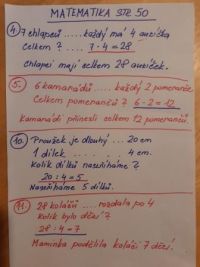 MATEMATIKA STR 50
4. 7 chlapců ..... každý má 4 autíčka
Celkem ? .... 7 · 4 = 28
Chlapci mají celkem 28 autíček.
5. 6 kamarádů ..... každý 2 pomeranče
Celkem pomerančů ? 6 · 2 = 12
Kamarádi přinesli celkem 12 pomerančů.
10. Proužek je dlouhý ... 20 cm
1 dílek .... 4 cm.
Kolik dílků nastříháme?
20 : 4 = 5
Nastříháme 5 dílků.
11. 28 koláčů .... rozdala po 4
Kolik bylo dětí?
28 : 4 = 7
Maminka podělila koláči 7 dětí.